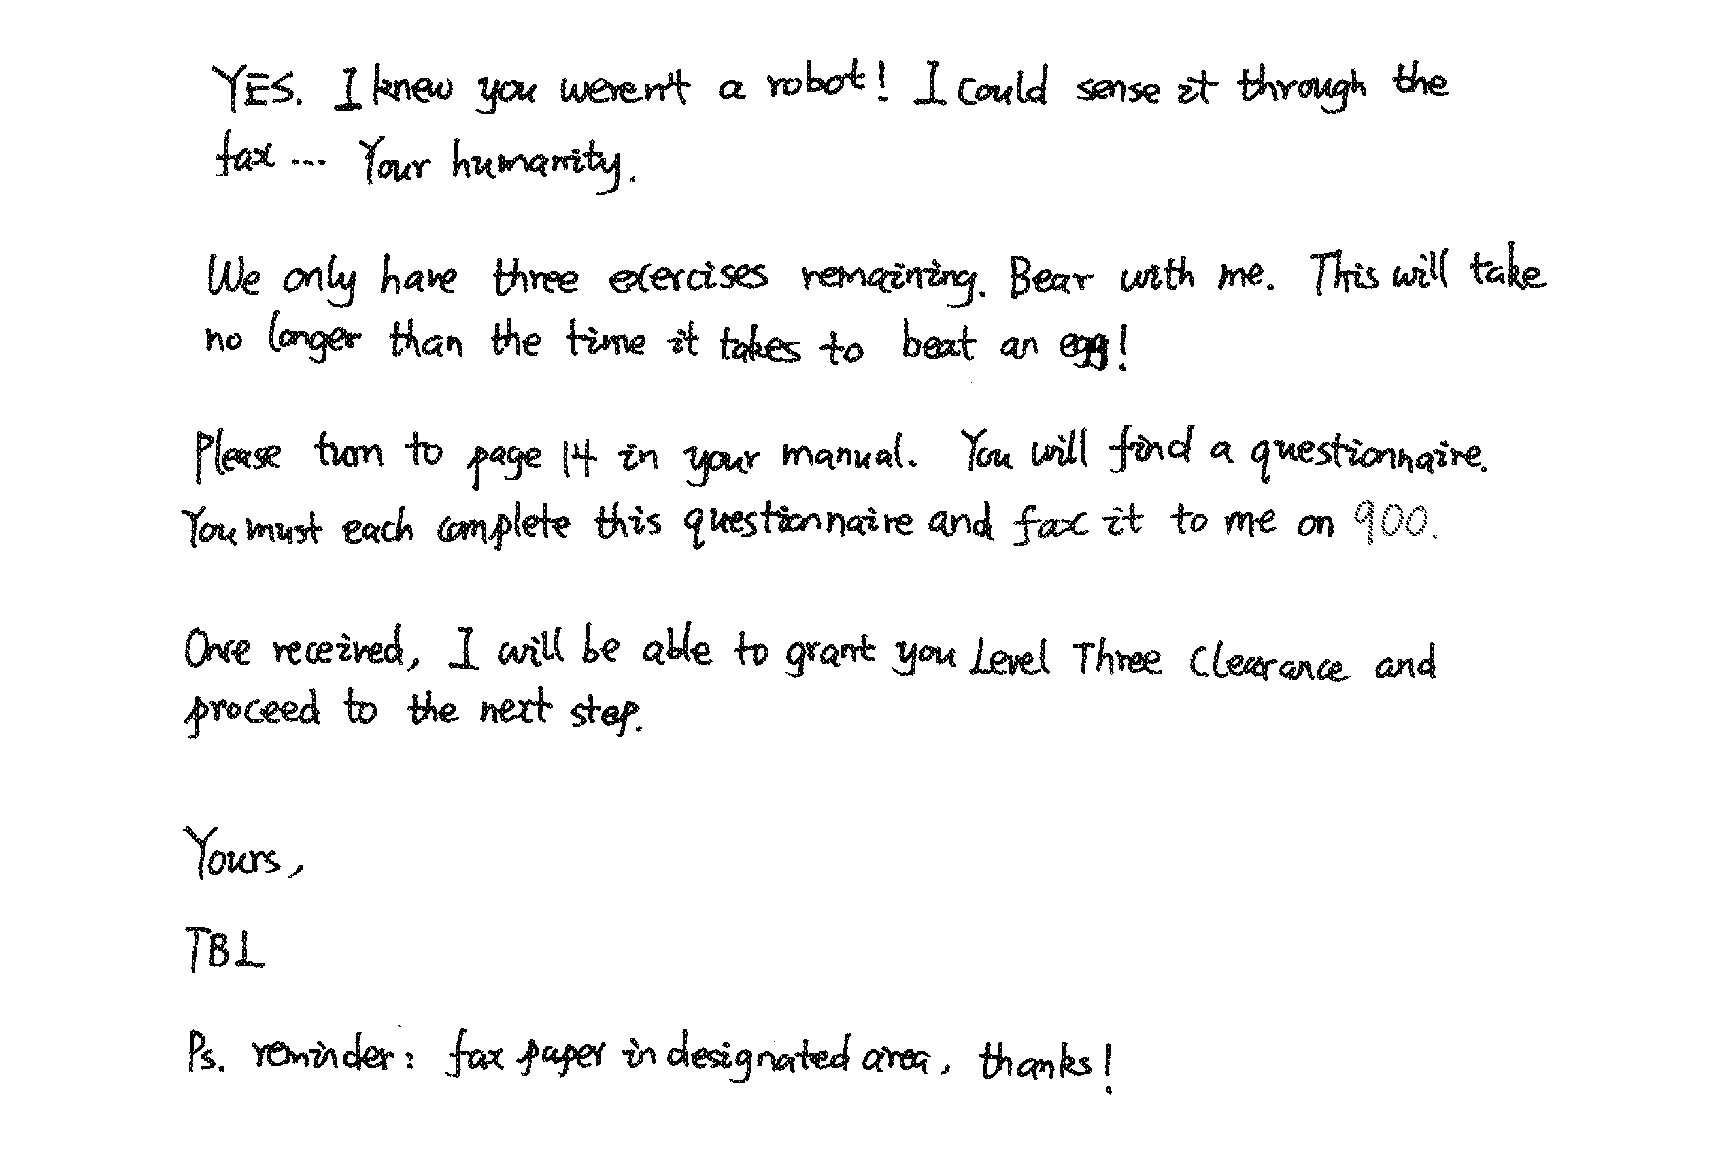 YES. I knew you weren't a robot! I could sense it through the
fax --- Your humanity.
We only have three exercises remaining. Bear with me. This will take
no longer than the time it takes to beat an egg!
Please turn to page 14 in your manual. You will find a questionnaire.
You must each complete this questionnaire and fax it to me on 900.
Once received, I will be able to grant you Level Three Clearance and
proceed to the next step.
Yours,
TBL
Ps. reminder: fax paper in designated area, thanks!